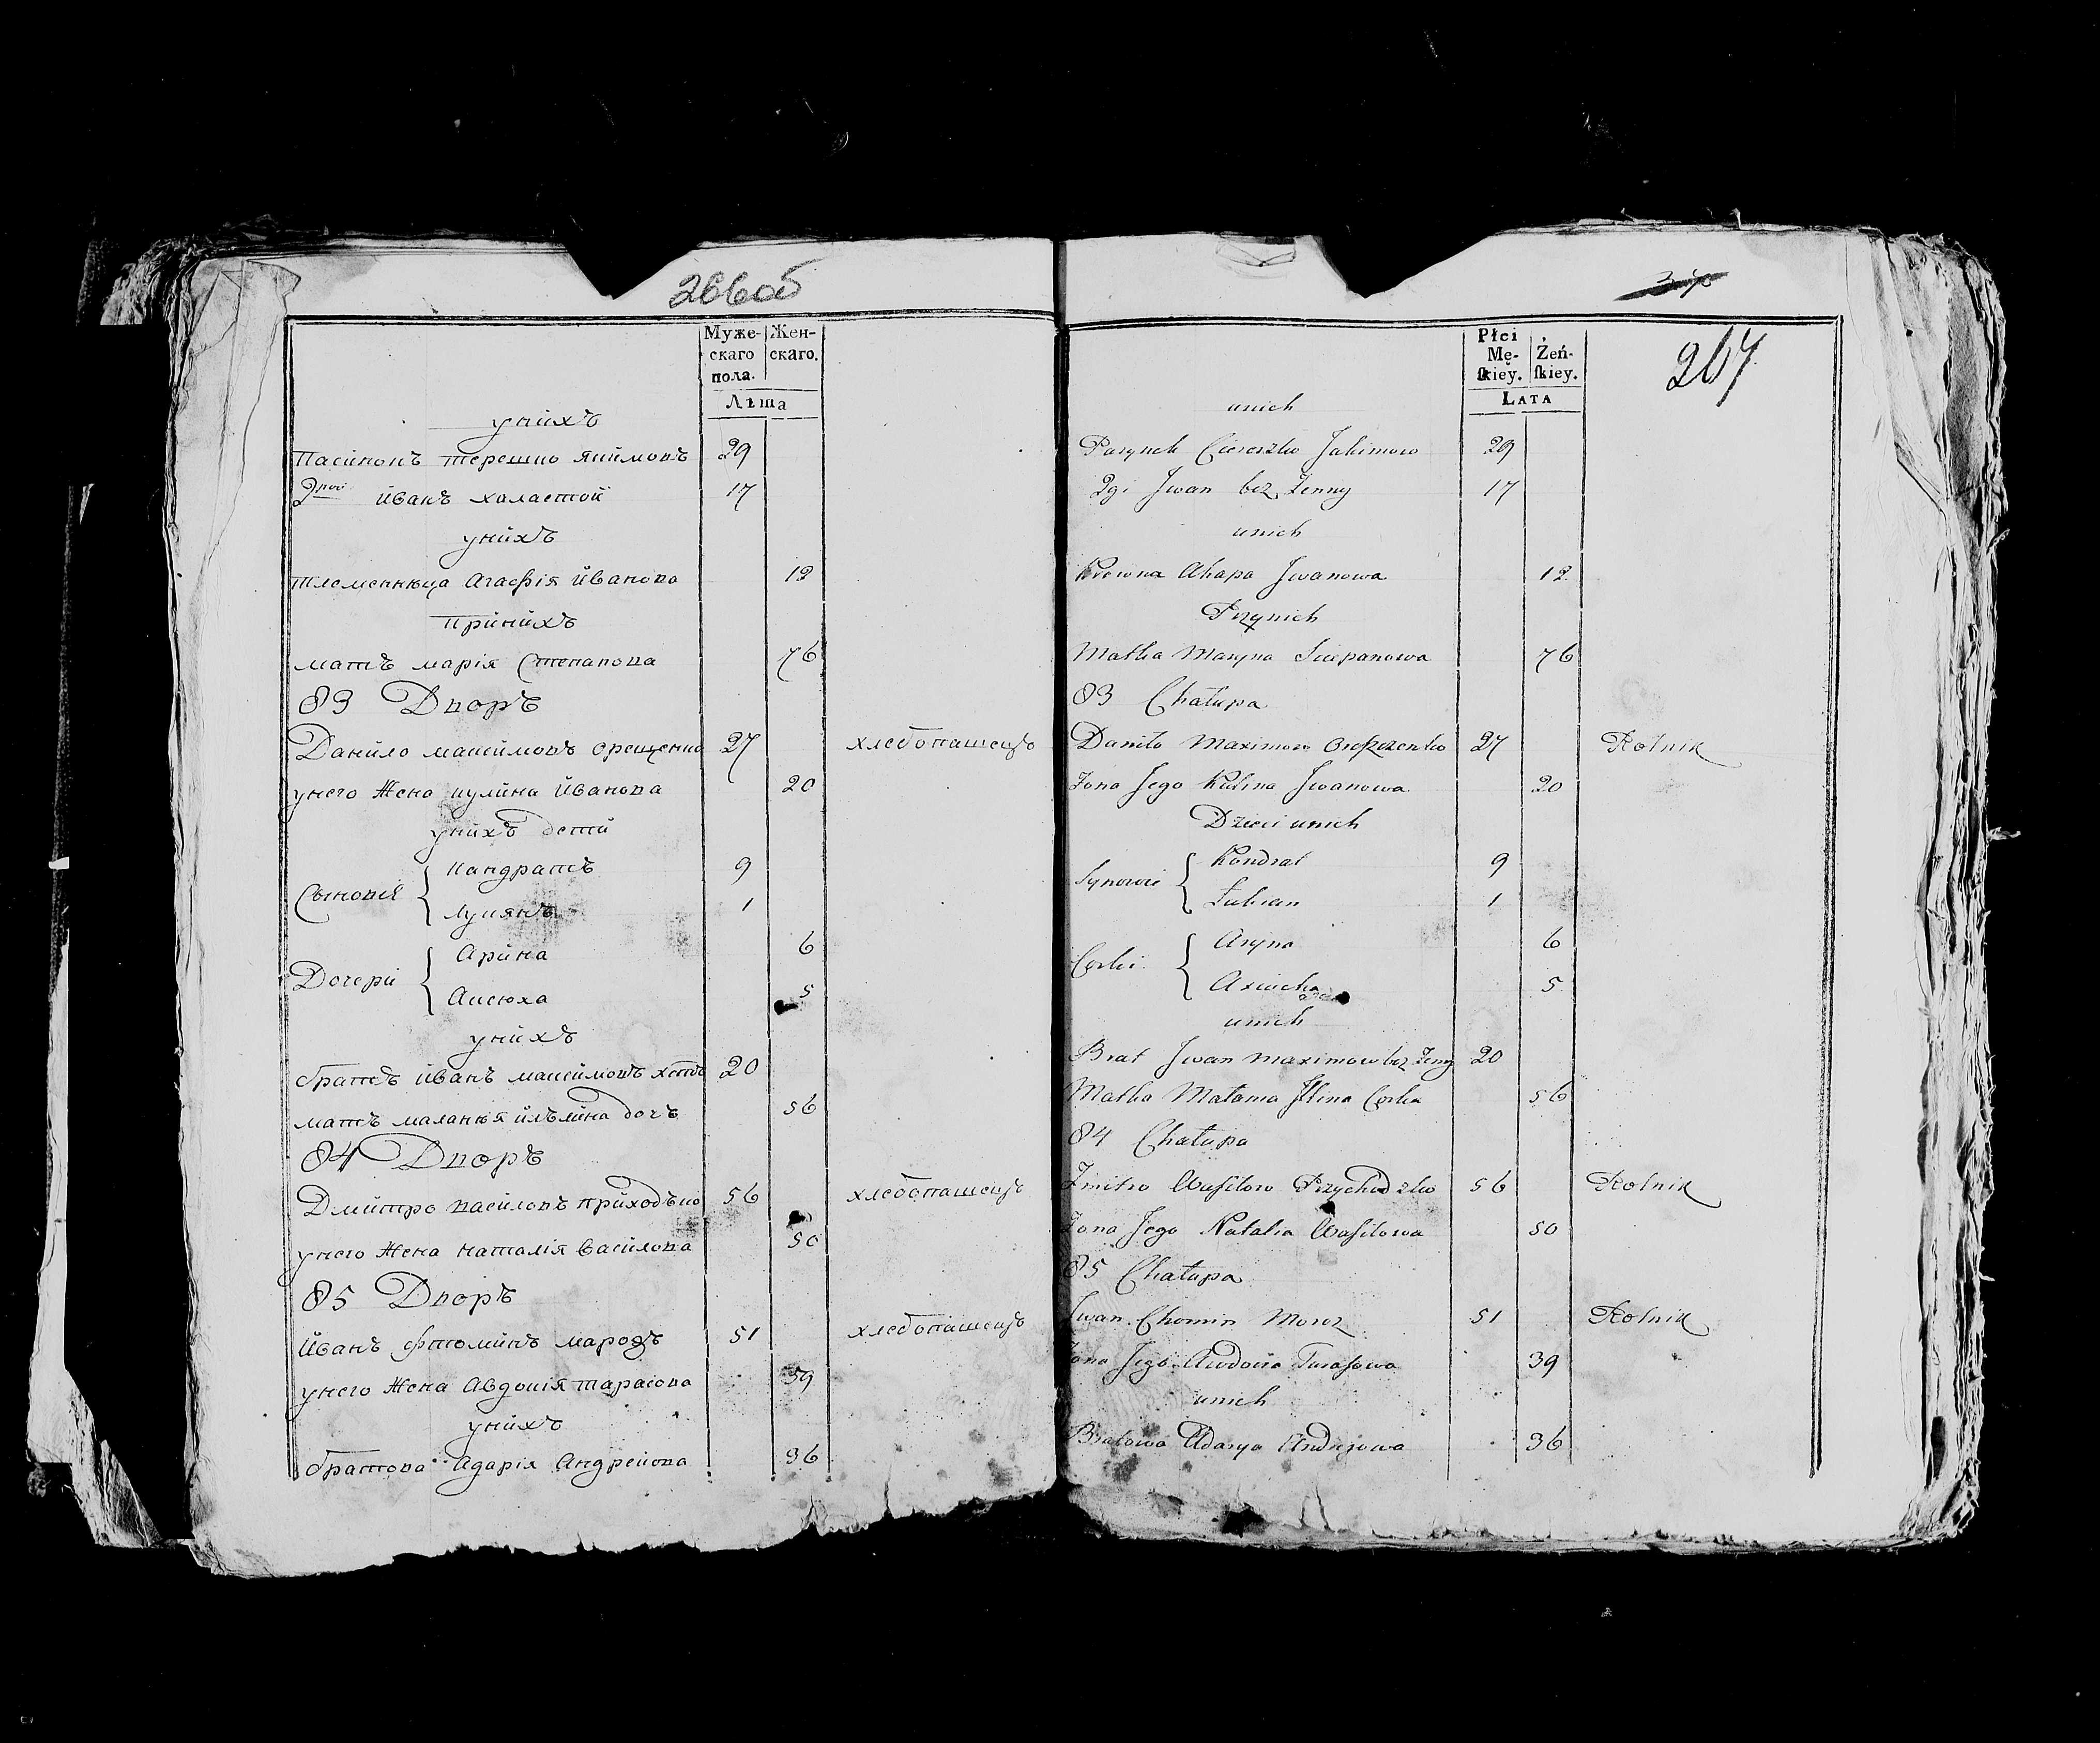 266об
Муже- Жен-
скаго скаго.
пола.
Лѣта
унихъ
пасинокъ терешко якимовъ 29
2гой йванъ халастой 17
унихъ
племенница агафія йванова 12
принихъ
матъ марія Степанова 76
83 Дворъ
Данило максимовъ орещенко 27 хлебопашецъ
унего жена кулина йванова 20
унихъ дети
Сыновя { Кандратъ 9
Лукянъ 1
Дочери { Арина 6
Аксюха 5
унихъ
братъ иванъ максимовъ хстъ 20
матъ маланъя илъина дочъ 56
84 Дворъ
Дмитро василовъ приходъко 56 хлебопашецъ
унего жена наталія василова 50
85 Дворъ
йванъ фтоминъ марозъ 51 хлебопашецъ
унего жена авдокія тарасова 39
унихъ
братова адарія андреиова 36
267
Płci
Mę- Żeń-
skiey. skiey.
LATA
unich
Pasynek Ciereszko Jakimow 29
2gi Jwan bez Żenny 17
unich
Krewna Ahapa Jwanowa 12
Przynich
Matka Maryna Sciepanowa 76
83 Chałupa
Daniło Maximow 27 Rolnik
Żona Jego Kulina Jwanowa 20
Dzieci unich
Synowie { Kondrat 9
Łukian 1
Corki { Aryna 6
Axiucha 5
unich
Brat Jwan Maximow bez Żeny 20
Matka Małania Jllina Corka 56
84 Chałupa
Zmitro Wasilow Przychodzko 56 Rolnik
Żona Jego Natalia Wasilowa 50
85 Chałupa
Jwan Chomin Moroz 51 Rolnik
Żona Jego Awdocia Tarasowa 39
unich
Bratowa Adarya Andrejowa 36